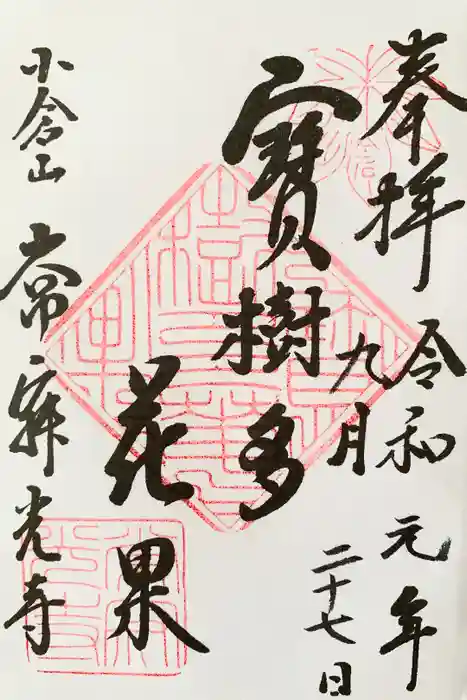 奉拝
令和元年
九月
二十七日
寶樹多
花果
小倉山
常寂光寺